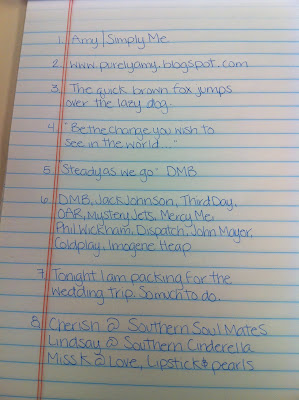 1. Amy/Simply Me
2. www.purelyamy.blogspot.com
3. The quick brown fox jumps
over the lazy dog.
4. "Be the change you wish to
see in the world..."
5. "Steady as we go" DMB
6. DMB, Jack Johnson, Third Day,
OAR, Mystery Jets, Mercy Me,
Phil Wickham, Dispatch, John Mayer,
Coldplay, Imogene Heap
7. Tonight I am packing for the
wedding trip. So much to do.
8. Cherish @ Southern Soul Mates
Lindsay @ Southern Cinderella
Miss K @ Love, Lipstick & pearls